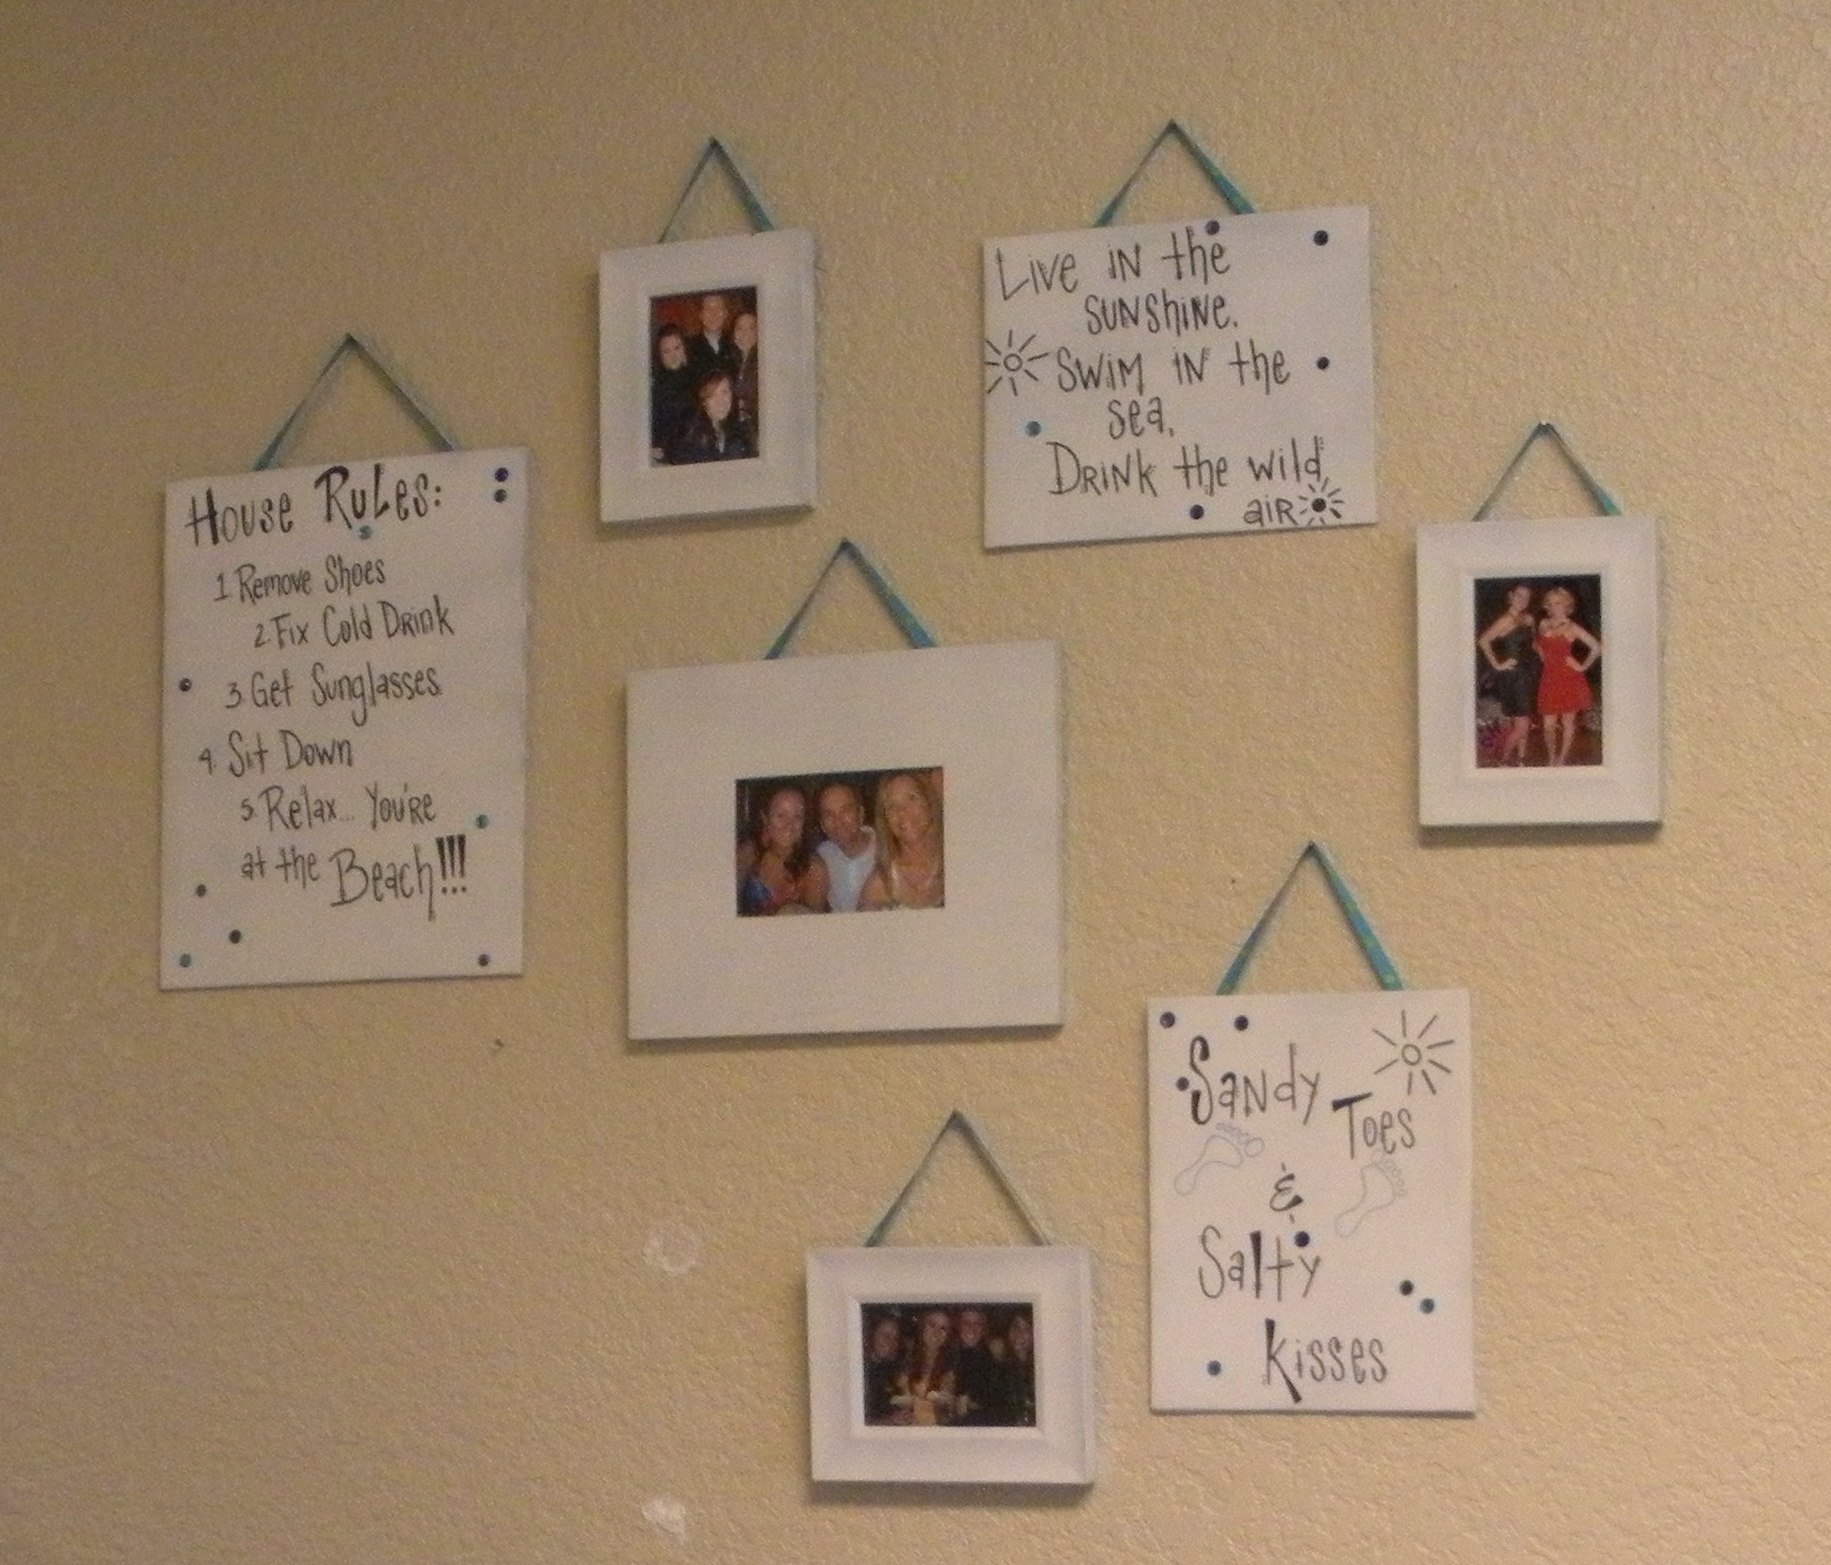 House Rules:
1. Remove Shoes
2. Fix Cold Drink
3. Get Sunglasses
4. Sit Down
5. Relax... You're
at the Beach!!!
Live in the
sunshine.
Swim in the
sea,
Drink the wild
air
Sandy
Toes
&
Salty
Kisses